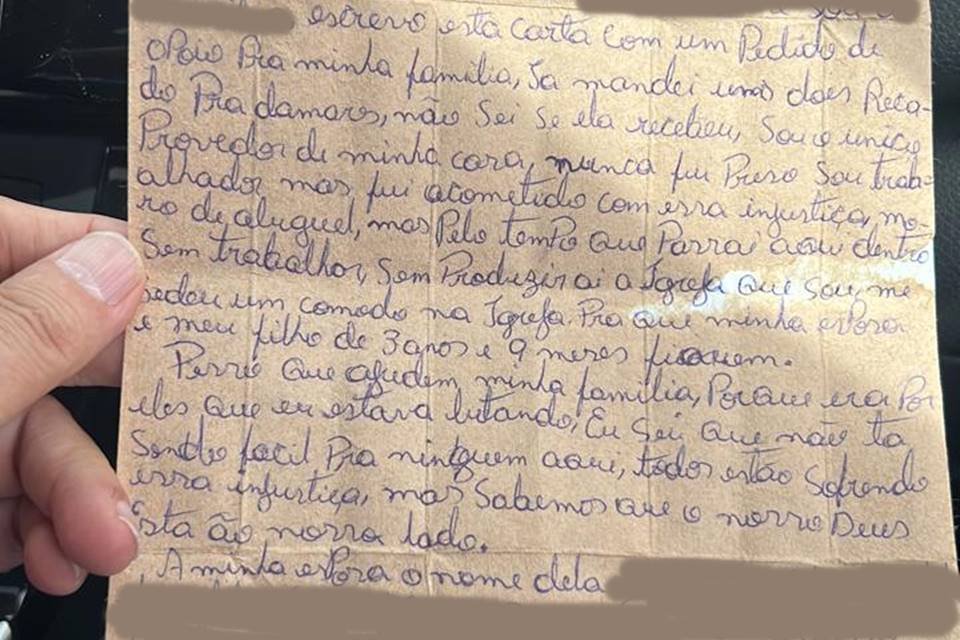 escrevo esta carta com um Pedido de
apoio Pra minha familia, Ja mandei uns does Reca-
do Pra damares, não Sei Se ela recebeu, Sou o unico
Provedor de minha casa, nunca fui Preso Sou trab-
alhador, mas fui acometido com essa injustiça, mo-
ro de aluguel, mas Pelo tempo que Passai aqui dentro
Sem trabalhar, Sem Produzir ai a Igreja que Sou, me
sedeu um comodo na Igreja. Pra que minha esposa
e meu filho de 3 anos e 9 meses fiquem.
Pesso que ajudem minha familia, Porque era Por
eles que eu estava lutando, Eu Sei que não ta
Sendo facil Pra ninguem aqui, todos estão Sofrendo
essa injustiça, mas Sabemos que o nosso Deus
Esta ão nosso lado.
A minha esposa o nome dela